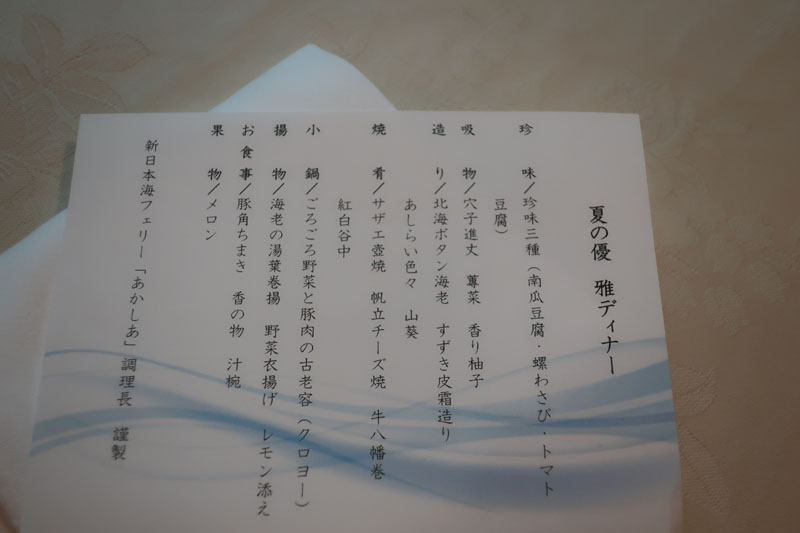 夏の優　雅ディナー
珍　味／珍味三種（南瓜豆腐・螺わさび・トマト
豆腐）
吸　物／穴子進丈　蓴菜　香り柚子
造　り／北海ボタン海老　すずき皮霜造り
あしらい色々　山葵
焼　肴／サザエ壺焼　帆立チーズ焼　牛八幡巻
紅白谷中
小　鍋／ごろごろ野菜と豚肉の古老容（クロヨー）
揚　物／海老の湯葉巻揚　野菜衣揚げ　レモン添え
お食事／豚角ちまき　香の物　汁椀
果　物／メロン
新日本海フェリー「あかしあ」調理長　謹製